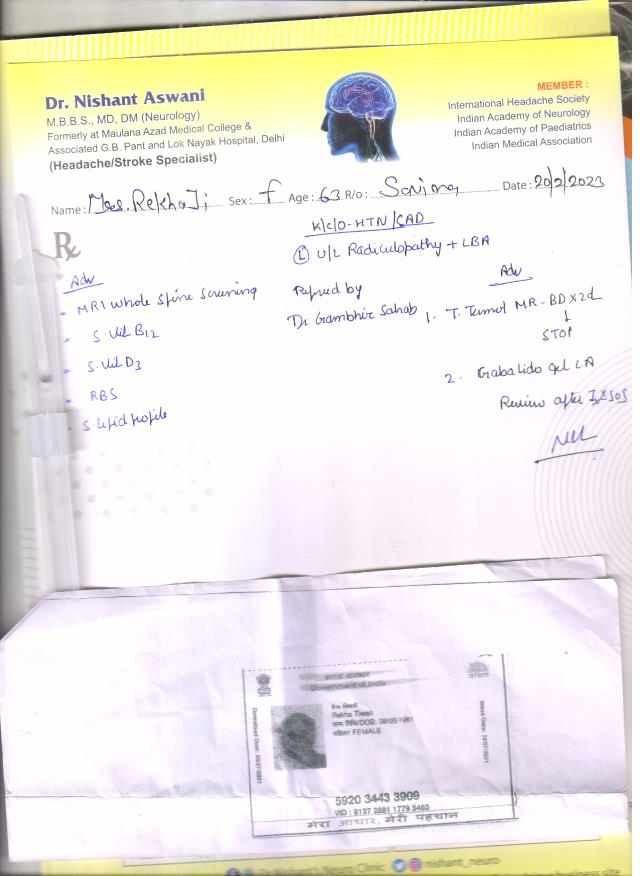 Dr. Nishant Aswani
M.B.B.S., MD, DM (Neurology)
Formerly at Maulana Azad Medical College &
Associated G.B. Pant and Lok Nayak Hospital, Delhi
(Headache/Stroke Specialist)
MEMBER :
International Headache Society
Indian Academy of Neurology
Indian Academy of Paediatrics
Indian Medical Association
Name: Mrs. Rekha Ji Sex: F Age: 63 R/o: Date: 20/2/2023
K/C/O-HTN/CAD
Rx
(L) U/L Radiculopathy + LBA
Adv
- MRI whole spine screening
- S. Vit B12
- S. Vit D3
- RBS
- S. Lipid profile
Refered by
Dr Gambhir Sahab
Adv
1. T. MR - BD x 2d
↓
STOP
2. Gabalido gel LA
Review after SOS
रेखा तिवारी
Rekha Tiwari
जन्म तिथि/DOB:
महिला/ FEMALE
5920 3443 3909
VID : 9137 2881 1779 5465
मेरा आधार, मेरी पहचान
Dr Nishant's Neuro Clinic
nishant_neuro